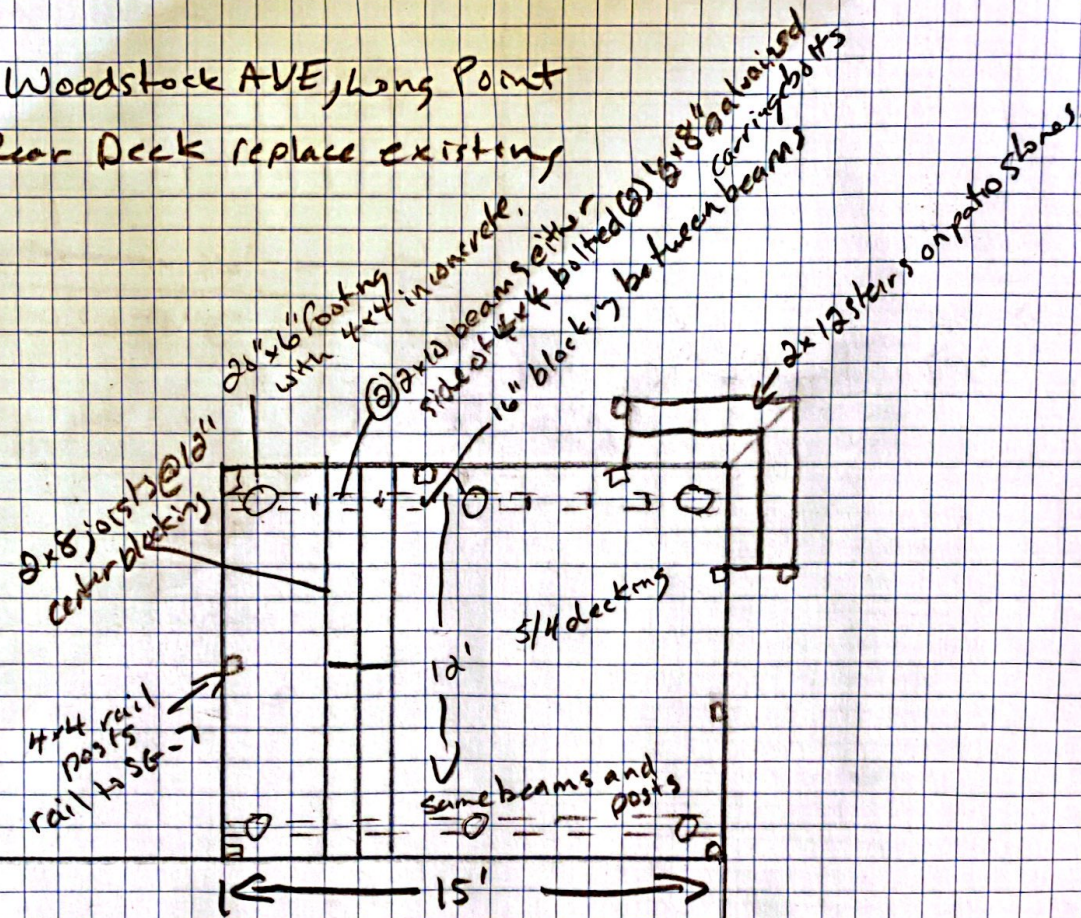 Woodstock AVE, Long Point
Rear Deck replace existing
20"x6" footing
with 4x4 in concrete.
(2) 2x10 beams either
side of 4x4 bolted (2) 8" galvanized
carriage bolts
16" blocking between beams
2x12 stairs on patio stones
2x8 joists @ 12"
center blocking
5/4 decking
12'
4x4 rail
posts
rail to SG-7
same beams and
posts
15'